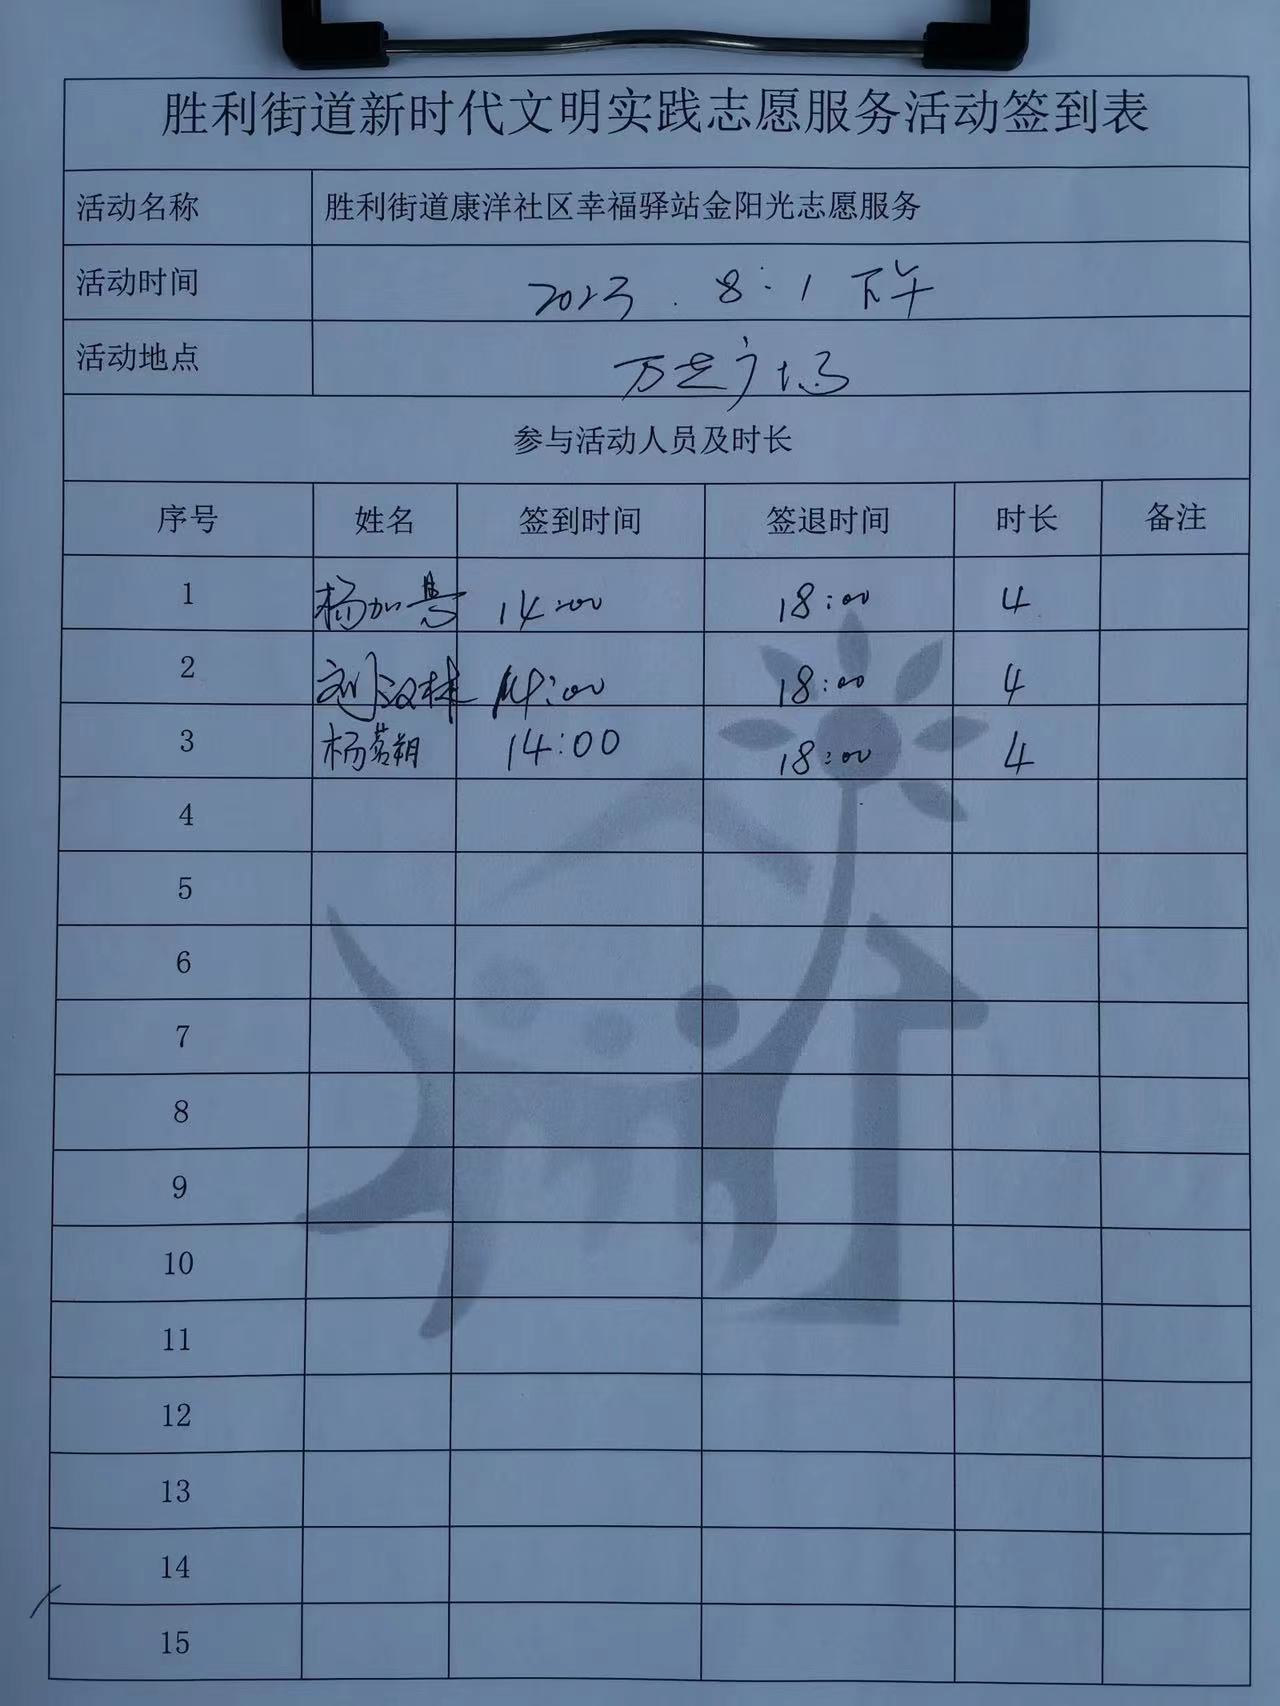 胜利街道新时代文明实践志愿服务活动签到表
活动名称 胜利街道康洋社区幸福驿站金阳光志愿服务
活动时间 2023.8:1 下午
活动地点 万达广场
参与活动人员及时长
序号 姓名 签到时间 签退时间 时长 备注
1 杨加慧 14:00 18:00 4
2 刘汉林 14:00 18:00 4
3 杨茗翔 14:00 18:00 4
4
5
6
7
8
9
10
11
12
13
14
15